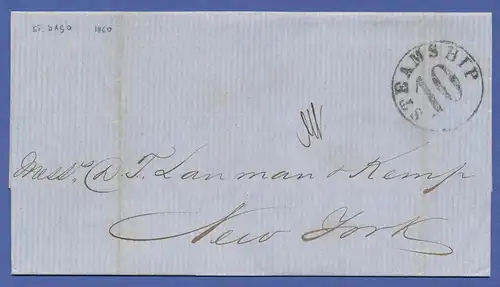 ST. DAGO 1860
STEAMSHIP
10
Messrs. D. T. Lanman & Kemp
New York